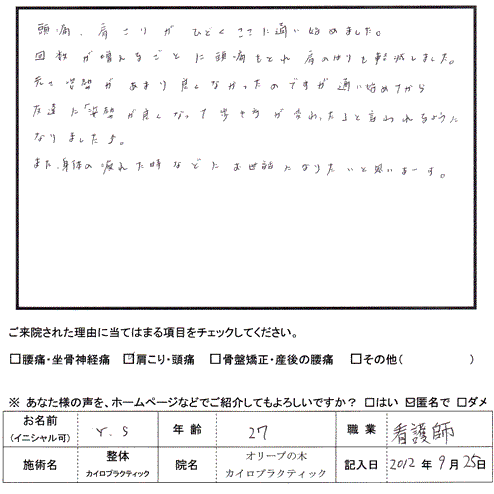 頭痛、肩こりがひどくここに通い始めました。
回数が増えるごとに頭痛もとれ肩のはりも軽減しました。
元々姿勢があまり良くなかったのですが通い始めてから
友達に「姿勢が良くなって歩き方が変わった」と言われるように
なりました♪。
また、身体の疲れた時などにお世話になりたいと思いまーす。
ご来院された理由に当てはまる項目をチェックしてください。
□腰痛・坐骨神経痛 ☑肩こり・頭痛 □骨盤矯正・産後の腰痛 □その他( )
※ あなた様の声を、ホームページなどでご紹介してもよろしいですか? □はい ☑匿名で □ダメ
お名前 (イニシャル可) Y.S 年齢 27 職業 看護師
施術名 整体 カイロプラクティック 院名 オリーブの木 カイロプラクティック 記入日 2012年9月25日